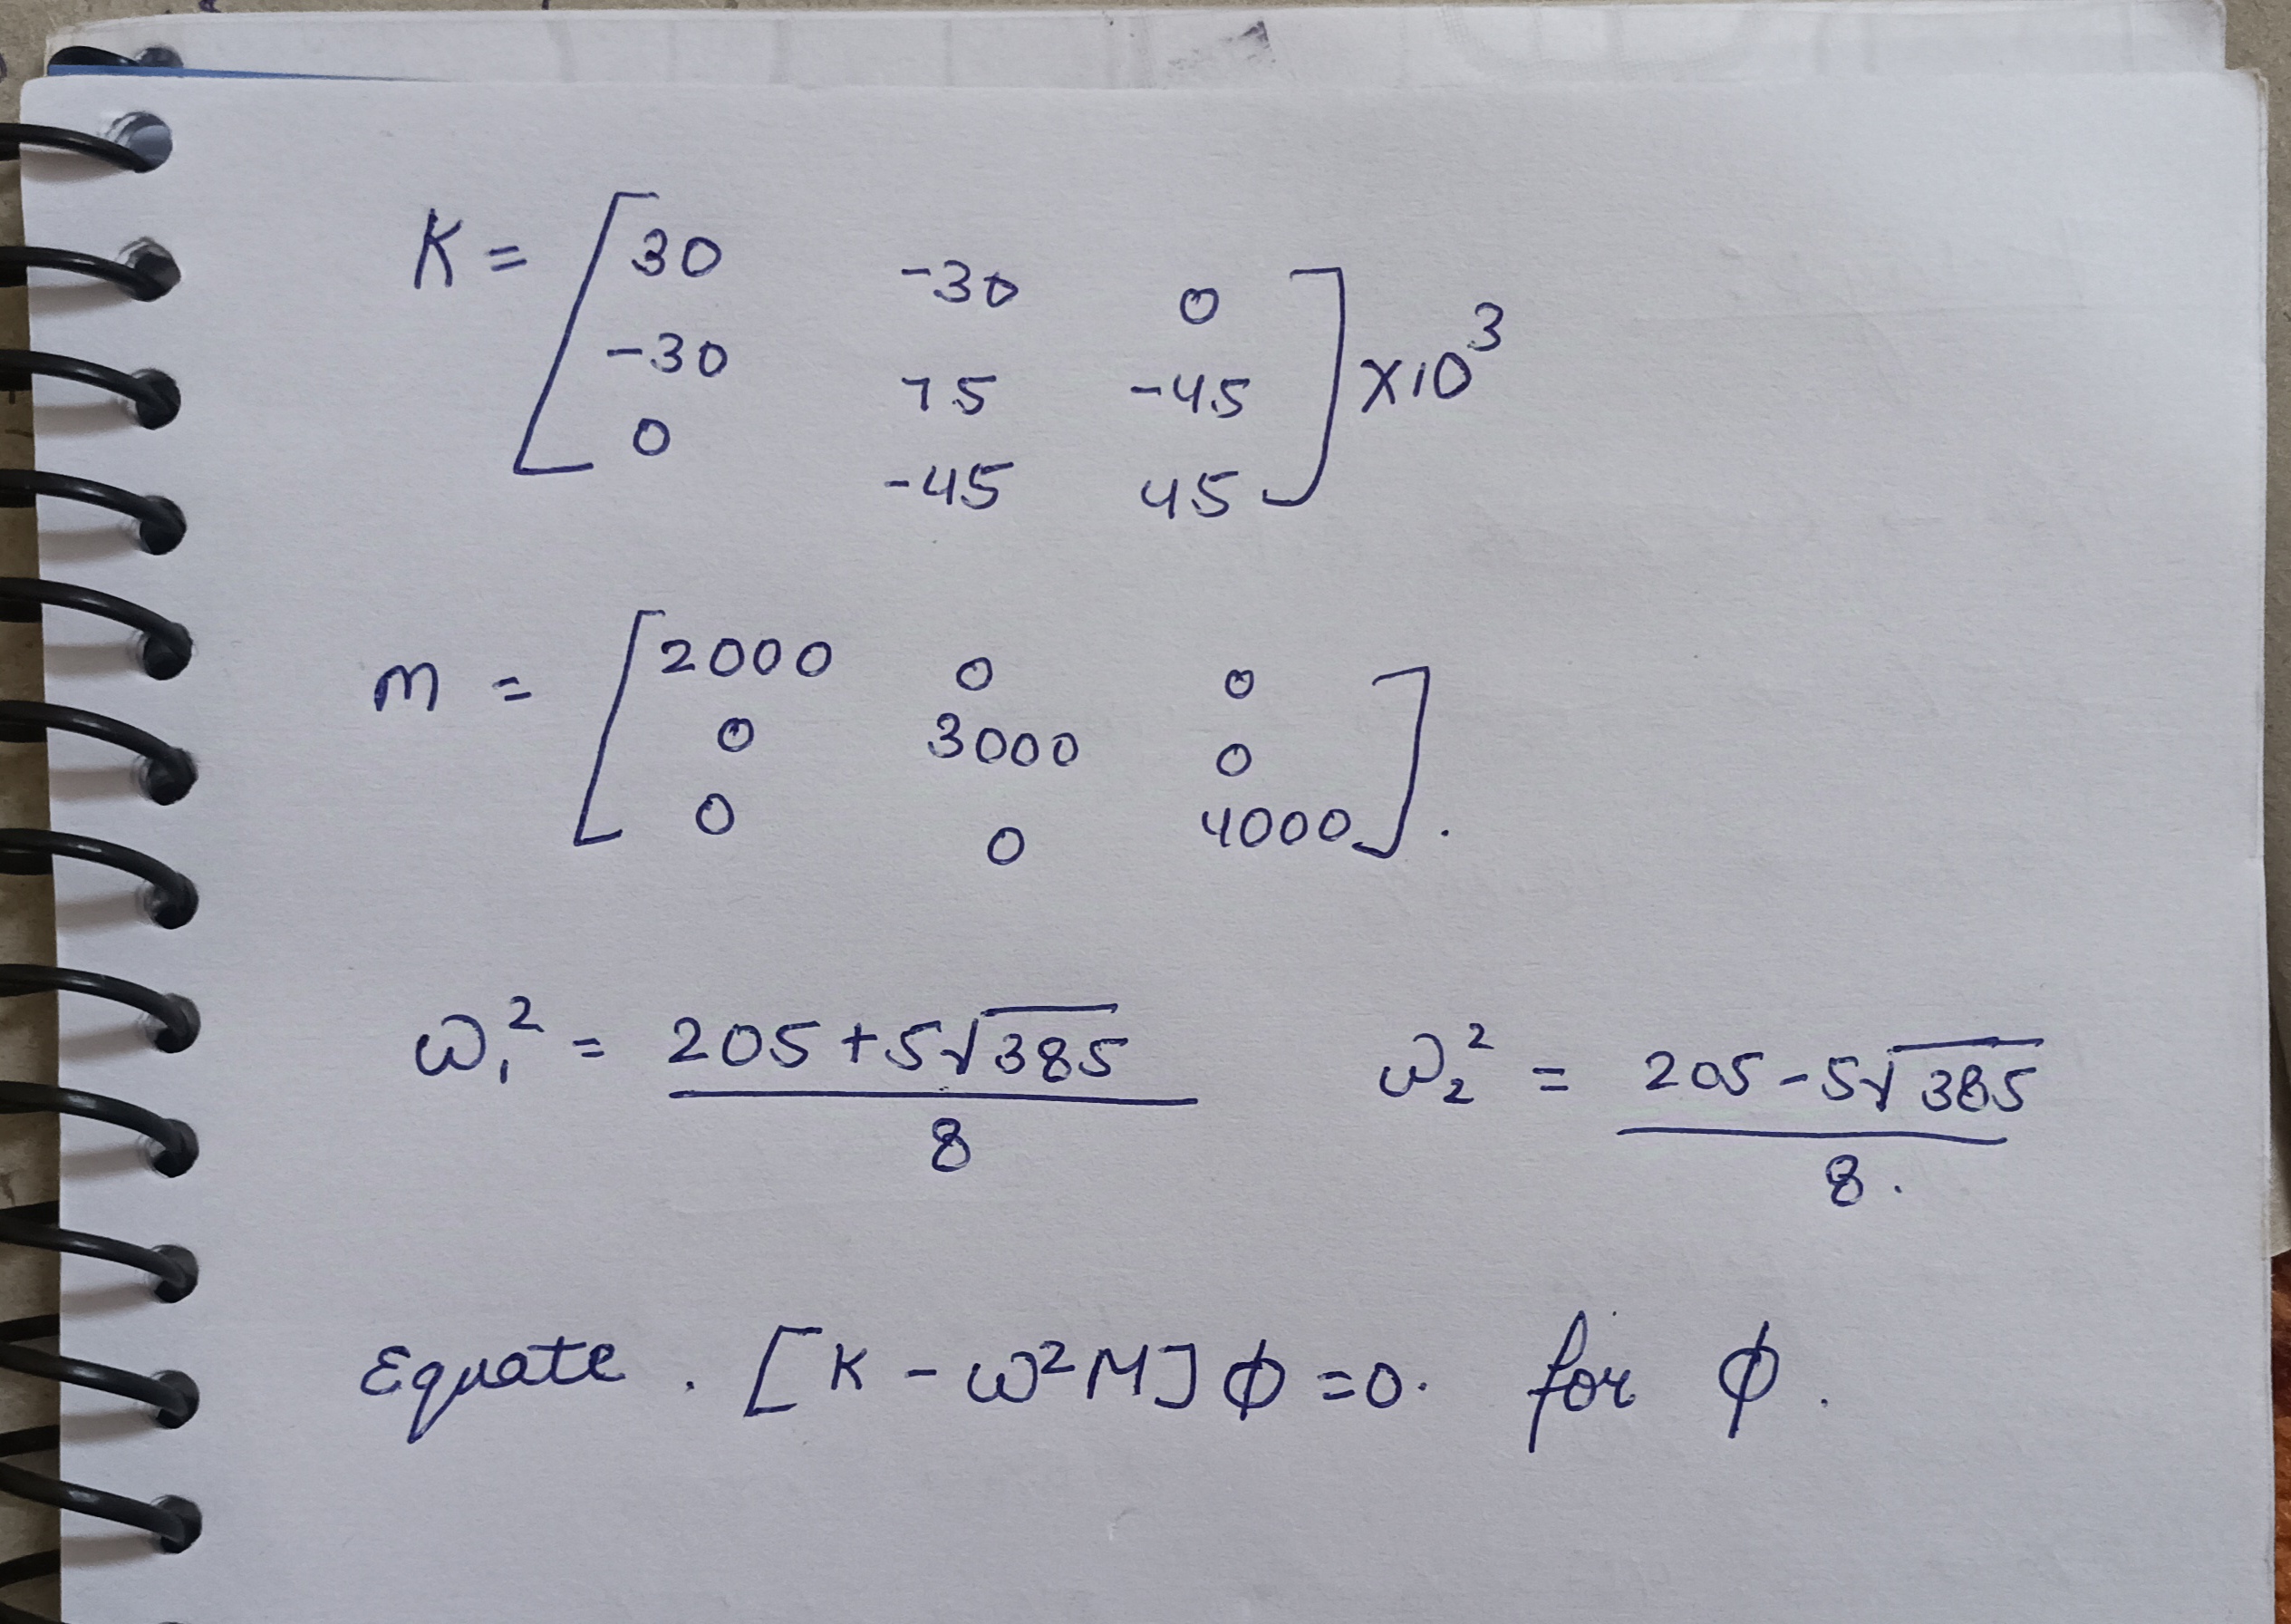 K = [ 30 -30 0
-30 75 -45
0 -45 45 ] ×10³
m = [ 2000 0 0
0 3000 0
0 0 4000 ].
ω₁² = (205 + 5√385) / 8 ω₂² = (205 - 5√385) / 8.
Equate. [K - ω²M]ϕ = 0. for ϕ.